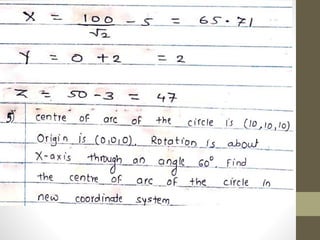 X = 100/√2 - 5 = 65.71
Y = 0 + 2 = 2
Z = 50 - 3 = 47
5) centre of arc of the circle is (10,10,10)
Origin is (0,0,0). Rotation is about
X-axis through an angle 60°. Find
the centre of arc of the circle in
new coordinate system.